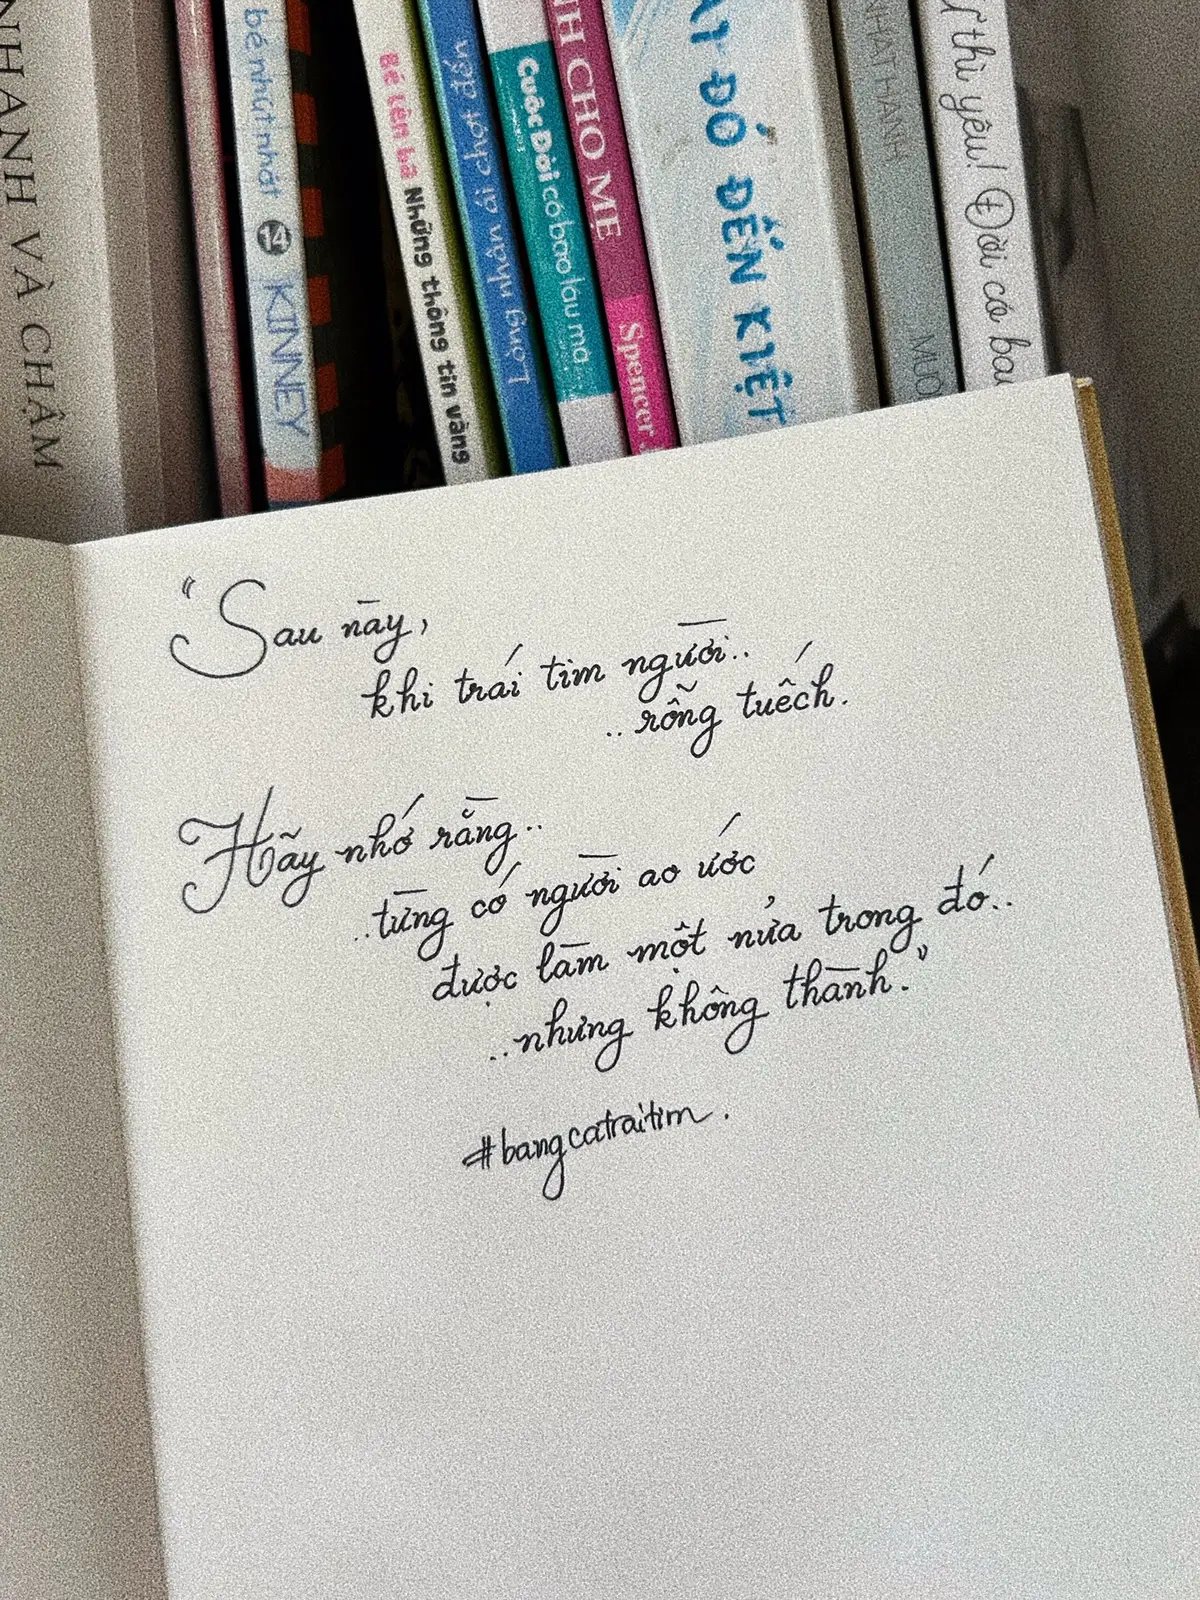 NHANH VÀ CHẬM
bé nhút nhát 14 KINNEY
Bé lên ba Những thông tin vàng
Lòng nhân ái chợt đến
Cuộc Đời có bao lâu mà
NH CHO MẸ Spencer
ĐÓ ĐẾN KIỆT
NHẬT THANH
thì yêu! Đời có bao
"Sau này,
khi trái tim người..
..rỗng tuếch.
Hãy nhớ rằng..
..từng có người ao ước
được làm một nửa trong đó..
..nhưng không thành."
#bangcatraitim.